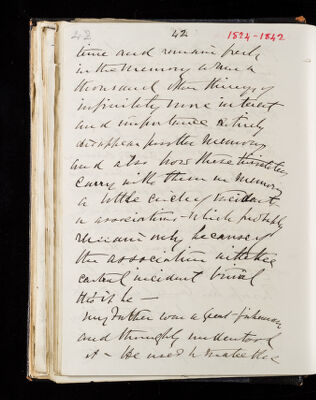 42 42 1824-1842
time and remain fresh
in the memory when a
thousand other things of
infinitely more interest
and importance entirely
disappear from the memory
and also how these
carry with them in memory
a little circle of incidents
or associations - which probably
remain only because of
the association with the
central incident trivial
tho it be —
My Father was a great fisherman
and thoroughly understood
it - He used to make the